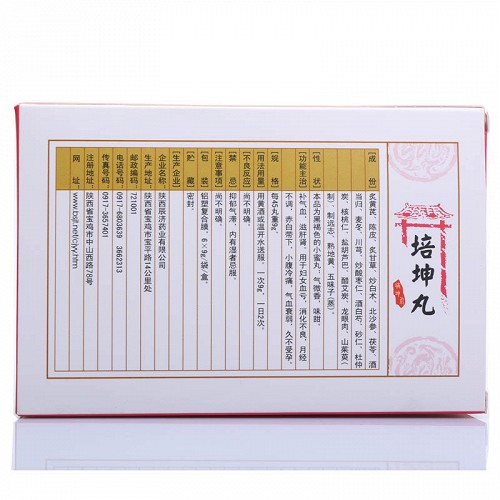 培坤丸
[成份] 炙黄芪、陈皮、炙甘草、炒白术、北沙参、茯苓、酒
当归、麦冬、川芎、炒酸枣仁、酒白芍、砂仁、杜仲
炭、核桃仁、盐胡芦巴、醋艾炭、龙眼肉、山茱萸(
制、制远志、熟地黄、五味子(蒸)。
[性状] 本品为黑褐色的小蜜丸；气微香，味甜。
[功能主治] 补气血，滋肝肾。用于妇女血亏，消化不良，月经
不调，赤白带下，小腹冷痛，气血衰弱，久不受孕。
[规格] 每45丸重9g。
[用法用量] 用黄酒或温开水送服，一次9g，一日2次。
[不良反应] 尚不明确。
[禁忌] 抑郁气滞，内有湿者忌服。
[注意事项] 尚不明确。
[包装] 铝塑复合膜，6×9g/袋/盒。
[贮藏] 密封。
[生产企业]
企业名称：陕西辰济药业有限公司
生产地址：陕西省宝鸡市宝平路14公里处
邮政编码：721001
电话号码：0917-6803639 3662313
传真号码：0917-3657401
注册地址：陕西省宝鸡市中山西路78号
网址：www.bgjt.net/cyy.htm